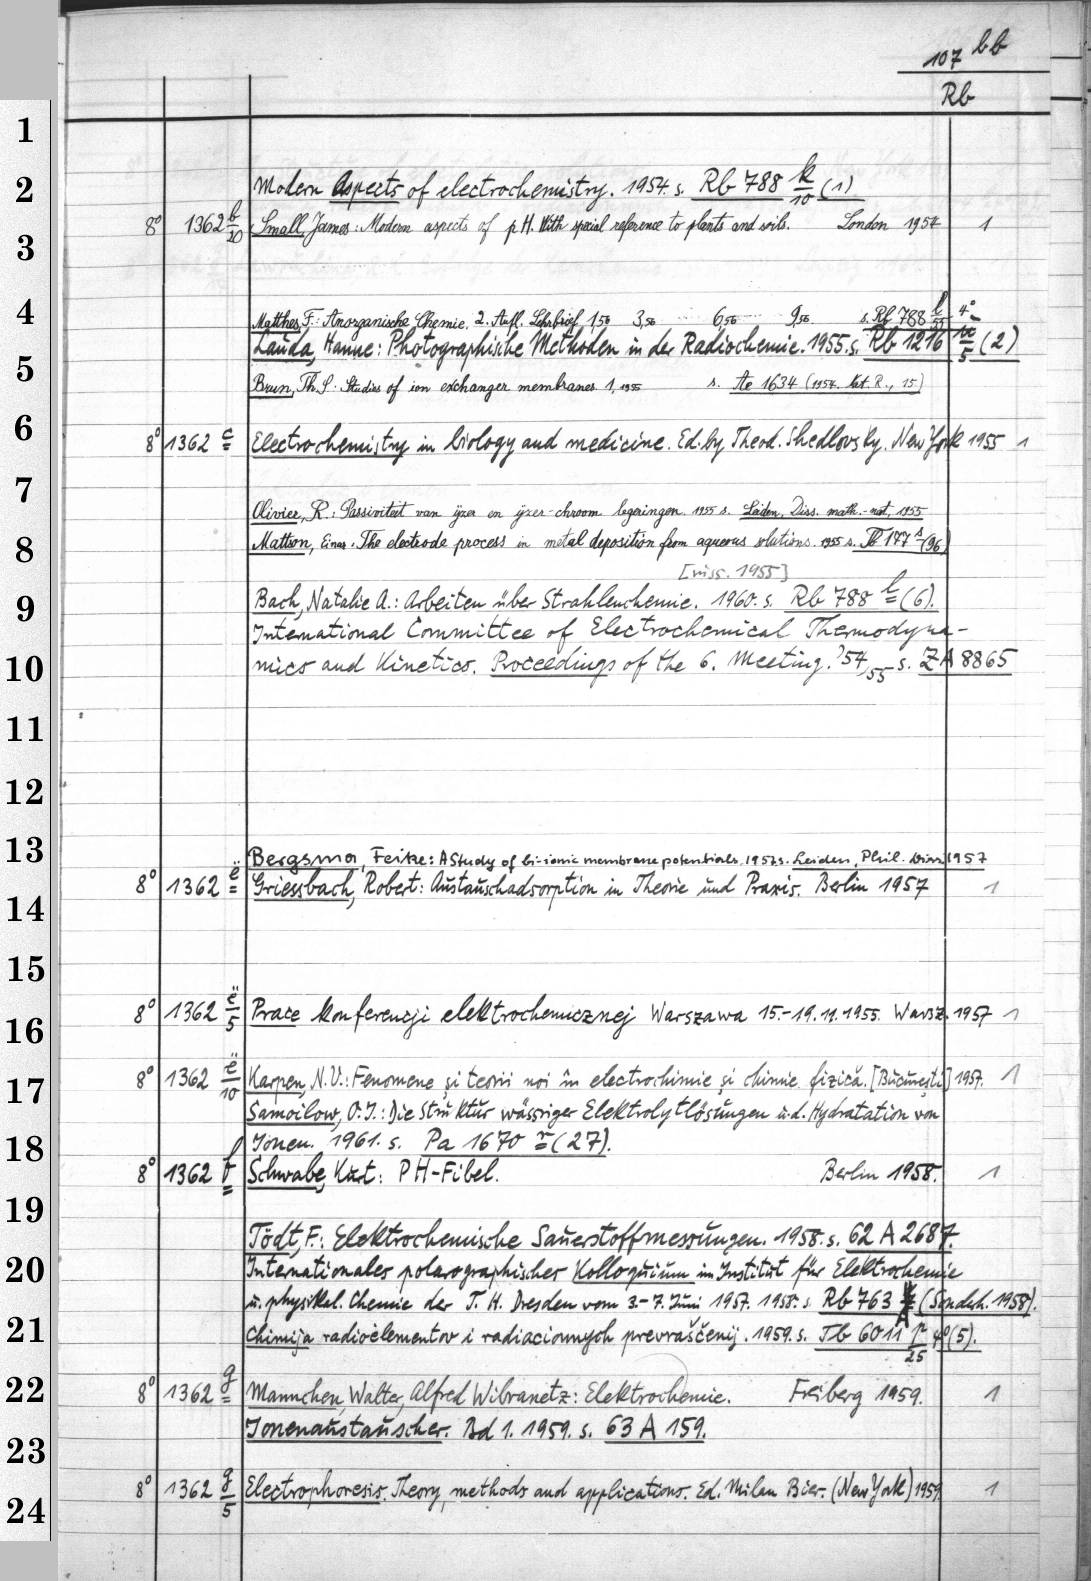 107 bb
Rb
1
2 Modern Aspects of electrochemistry. 1954. s. Rb 788 k/10 (1)
3 8° 1362 b/20 Small, James: Modern aspects of pH. With special reference to plants and soils. London 1954 1
4 Matthes, F.: Anorganische Chemie. 2. Aufl. Lehrbrief 1,56 3,56 6,56 9,56 s. Rb 788 l/55 4°
5 Lauda, Hanne: Photographische Methoden in der Radiochemie. 1955. s. Rb 1216 /5 (2)
Brun, Th. S.: Studies of ion exchanger membranes 1, 1955 s. Ae 1634 (1954. Nat. R., 15)
6 8° 1362 c Electrochemistry in biology and medicine. Ed. by Theod. Shedlovsky. New York 1955 1
7 Olivier, R.: Passiviteit van ijzer en ijzer-chroom legeringen. 1955 s. Leiden, Diss. math.-nat. 1955
8 Mattson, Einar: The electrode process in metal deposition from aqueous solutions. 1955 s. Tb 177 s (96)
[russ. 1955]
9 Bach, Natalie A.: Arbeiten über Strahlenchemie. 1960. s. Rb 788 l (6).
International Committee of Electrochemical Thermodyna-
10 mics and Kinetics. Proceedings of the 6. Meeting. '54, 55 s. ZA 8865
11
12
13 Bergsma, Feike: A Study of bi-ionic membrane potentials. 1957 s. Leiden, Phil. Diss. 1957
14 8° 1362 ë Griessbach, Robert: Austauschadsorption in Theorie und Praxis. Berlin 1957 1
15
16 8° 1362 ë/5 Prace konferencji elektrochemicznej Warszawa 15.-19.11.1955. Warsz. 1957 1
17 8° 1362 ë/10 Karpen, N. V.: Fenomene și teorii noi în electrochimie și chimie fizică. [București] 1957. 1
Samoilow, O. J.: Die Struktur wässriger Elektrolytlösungen u. d. Hydratation von
18 Jonen. 1961. s. Pa 1670 r (27).
8° 1362 f Schwabe, Kurt: PH-Fibel. Berlin 1958. 1
19 Tödt, F.: Elektrochemische Sauerstoffmessungen. 1958. s. 62 A 2687.
20 Internationales polarographischer Kolloquium im Institut für Elektrochemie
u. physikal. Chemie der T. H. Dresden vom 3.-7. Juni 1957. 1958. s. Rb 763 (Sonderh. 1958).
21 Chimija radioėlementov i radiacionnych prevraščenij. 1959. s. Tb 6011 p/25 4° (5).
22 8° 1362 g Mannchen, Walter, Alfred Wibranetz: Elektrochemie. Freiberg 1959. 1
23 Jonenaustauscher. Bd 1. 1959. s. 63 A 159.
24 8° 1362 g/5 Electrophoresis. Theory, methods and applications. Ed. Milan Bier. (New York) 1959. 1